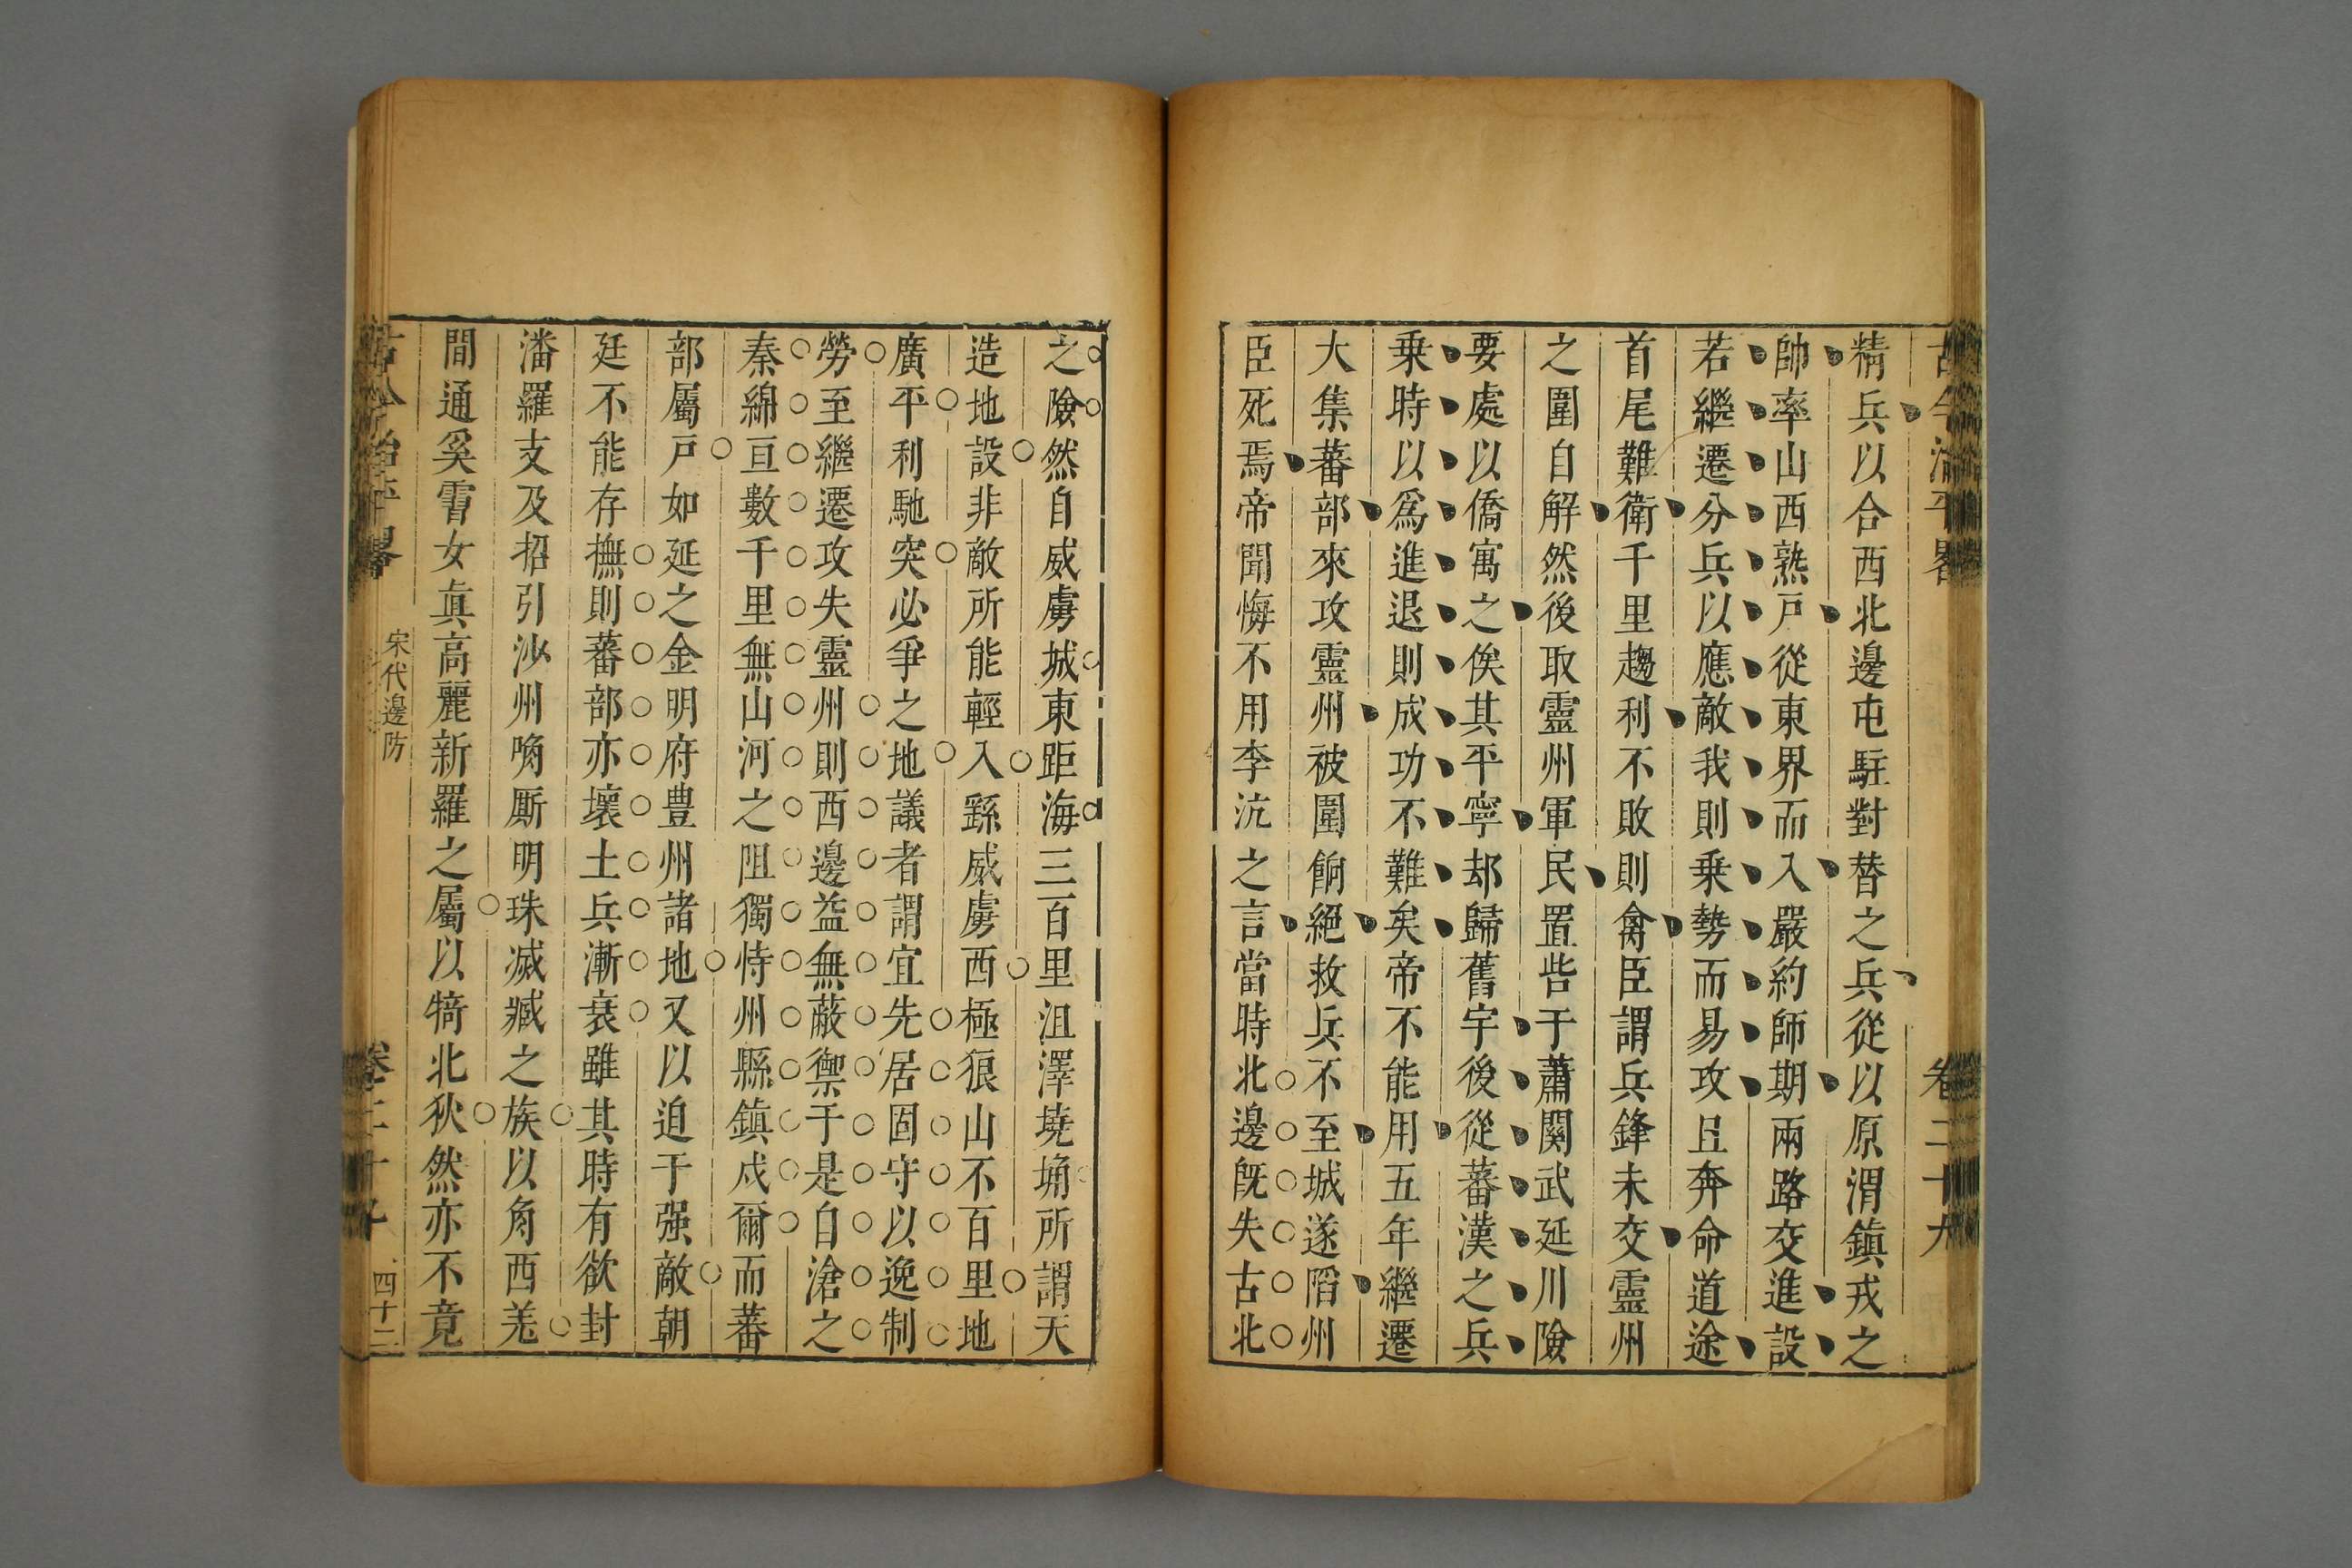 古今治平畧
卷二十九
精兵以合西北邊屯駐對替之兵從以原渭鎮戎之
帥率山西熟戶從東界而入嚴約師期兩路交進設
若繼遷分兵以應敵我則乗勢而易攻且奔命道途
首尾難衛千里趨利不敗則禽臣謂兵鋒未交靈州
之圍自解然後取靈州軍民置呰于蕭関武延川險
要處以僑寓之俟其平寧却歸舊宇後從蕃漢之兵
乗時以爲進退則成功不難矣帝不能用五年繼遷
大集蕃部來攻靈州被圍餉絕救兵不至城遂陷州
臣死焉帝聞悔不用李沆之言當時北邊旣失古北
之險然自威虜城東距海三百里沮澤墝埆所謂天
造地設非敵所能輕入繇威虜西極狼山不百里地
廣平利馳突必爭之地議者謂宜先居固守以逸制
勞至繼遷攻失靈州則西邊益無蔽禦于是自滄之
秦綿亘數千里無山河之阻獨恃州縣鎮戍爾而蕃
部屬戶如延之金明府豊州諸地又以迫于强敵朝
廷不能存撫則蕃部亦壞土兵漸衰雖其時有欲封
潘羅支及招引沙州唃厮明珠滅臧之族以角西羌
間通奚霫女眞高麗新羅之屬以犄北狄然亦不竟
古今治平畧
宋代邊防
卷二十九
四十二